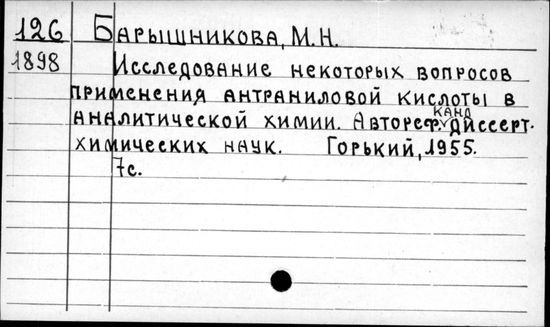 126 Барышникова, М.Н.
1898 Исследование некоторых вопросов
применения антраниловой кислоты в
канд
аналитической химии. Автореф. диссерт.
химических наук. Горький, 1955.
7с.